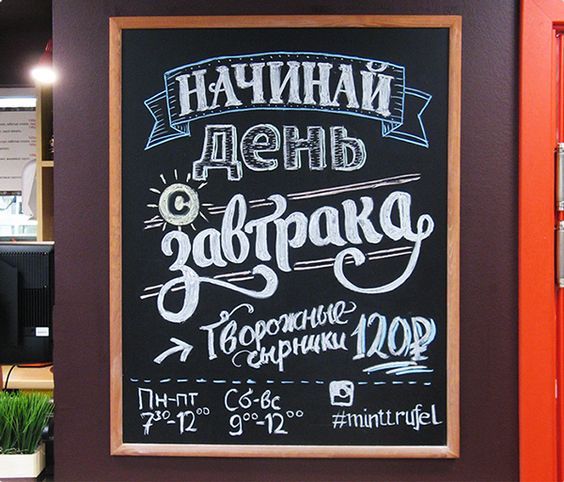 НАЧИНАЙ
день
с
завтрака
Творожные
сырники 120₽
Пн-пт Сб-вс
7³⁰-12⁰⁰ 9⁰⁰-12⁰⁰ #minttrufel